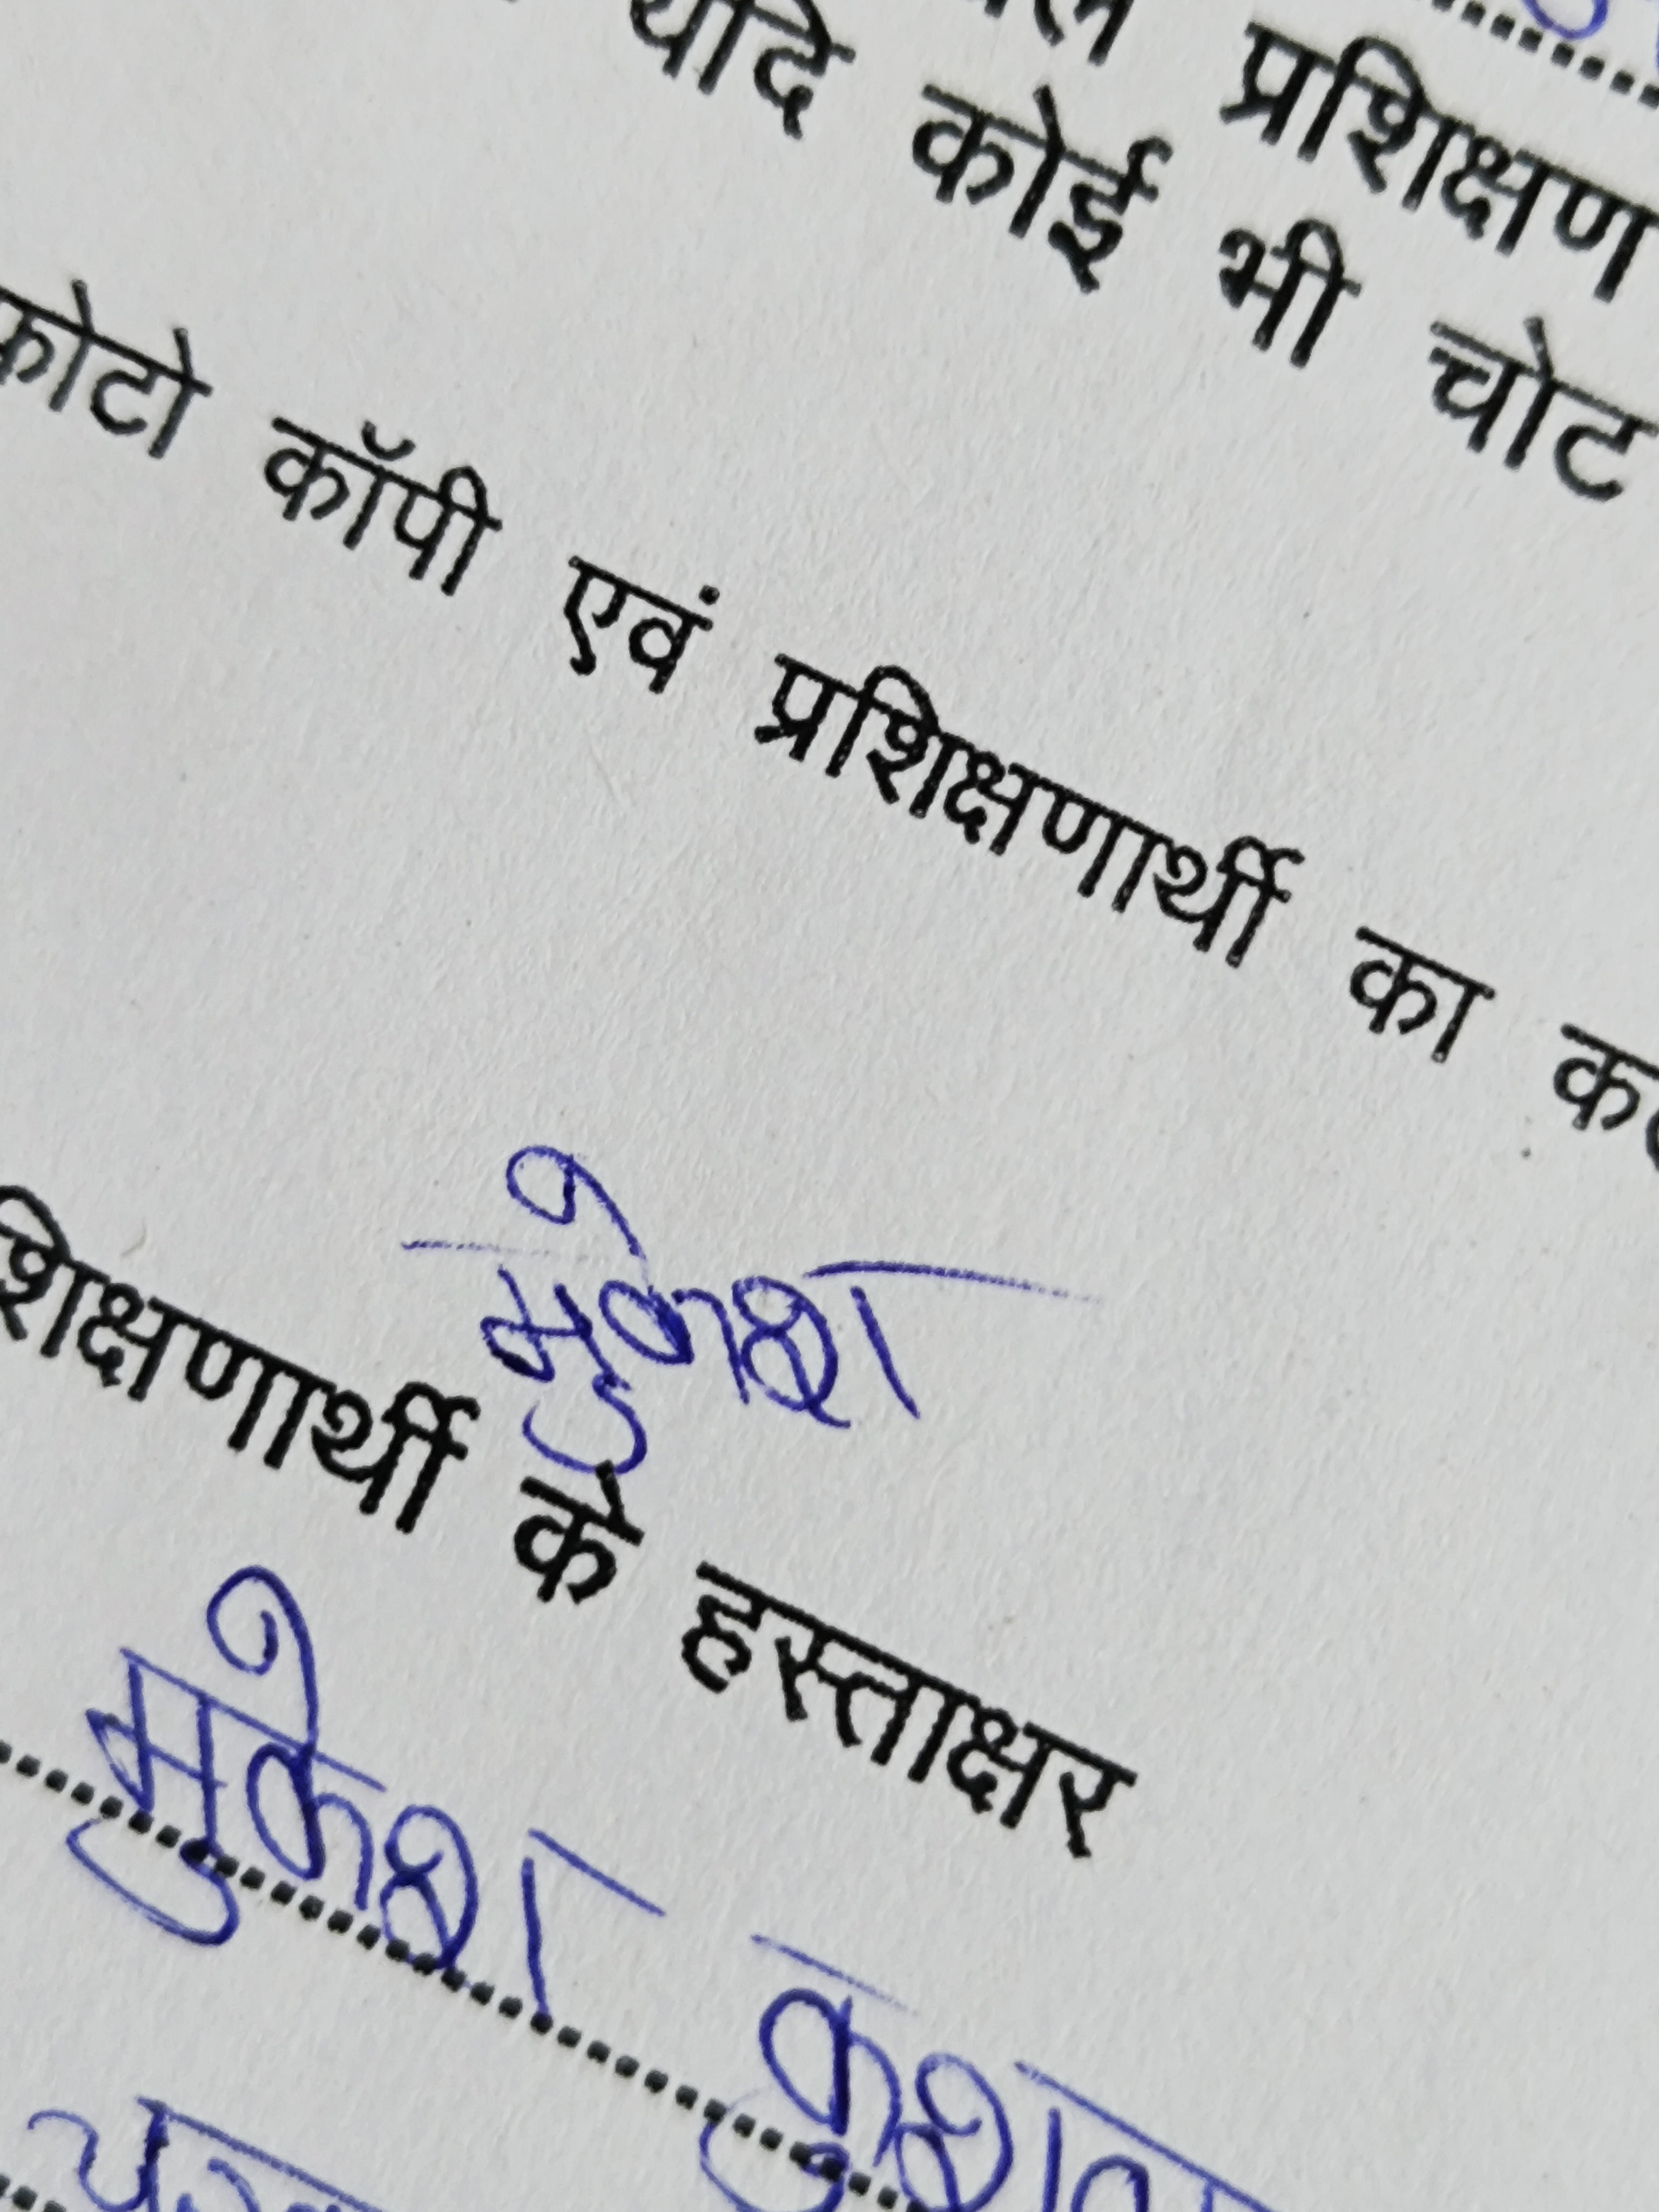 प्रशिक्षण
यदि कोई भी चोट
फोटो कॉपी एवं प्रशिक्षणार्थी का
मुकेश
शिक्षणार्थी के हस्ताक्षर
मुकेश